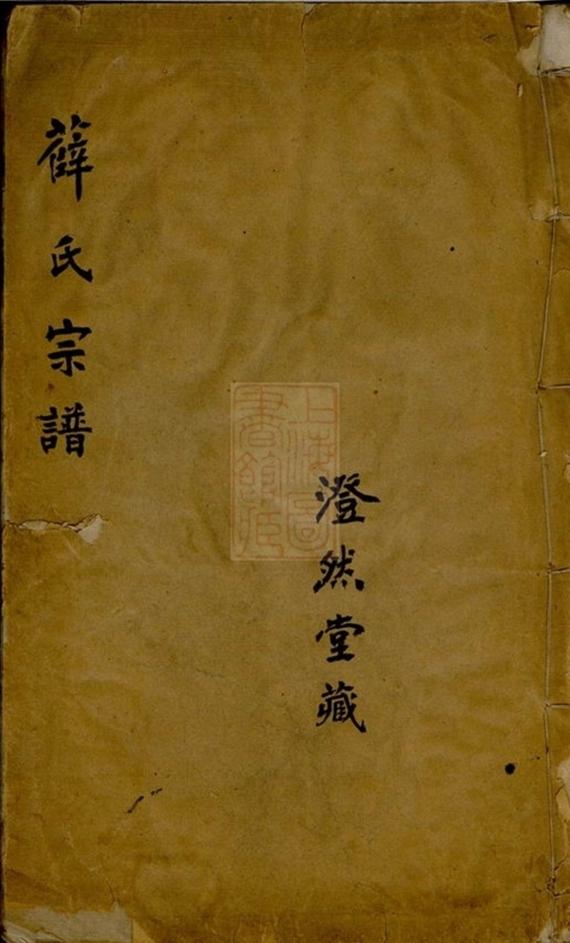 薛氏宗譜
澄然堂藏
上海圖
書館藏